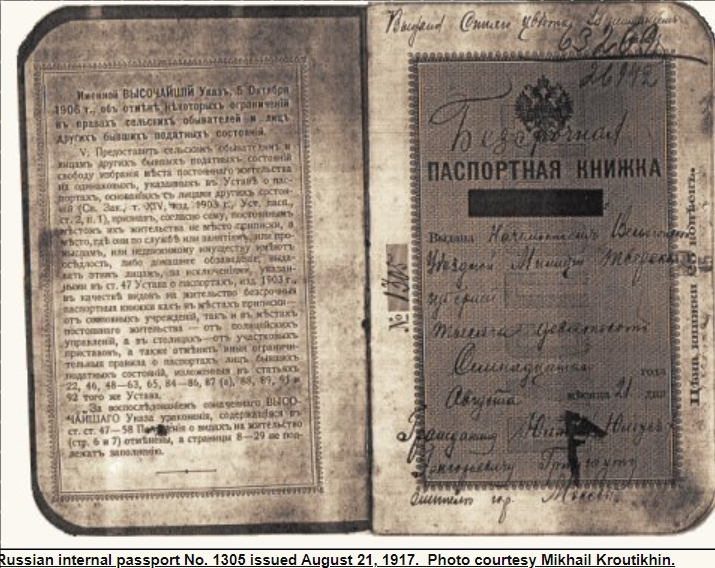 Именной ВЫСОЧАЙШІЙ Указъ, 5 Октября
1906 г., объ отмѣнѣ нѣкоторыхъ ограниченій
въ правахъ сельскихъ обывателей и лицъ
другихъ бывшихъ податныхъ состояній.
V. Предоставить сельскимъ обывателямъ и
лицамъ другихъ бывшихъ податныхъ состояній
свободу избранія мѣста постояннаго жительства
на одинаковыхъ, указанныхъ въ Уставѣ о пас-
портахъ, основаніяхъ съ лицами другихъ состоя-
ній (Св. Зак., т. XIV, изд. 1903 г., Уст. пасп.,
ст. 2, п. 1), признавъ, согласно сему, постояннымъ
мѣстомъ ихъ жительства не мѣсто приписки, а
мѣсто, гдѣ они по службѣ или занятіямъ, или про-
мысламъ, или недвижимому имуществу имѣютъ
осѣдлость, либо домашнее обзаведеніе; выда-
вать этимъ лицамъ, за исключеніями, указан-
ными въ ст. 47 Устава о паспортахъ, изд. 1903 г.,
въ качествѣ видовъ на жительство безсрочныя
паспортныя книжки какъ въ мѣстахъ приписки—
отъ сословныхъ учрежденій, такъ и въ мѣстахъ
постояннаго жительства — отъ полицейскихъ
управленій, а въ столицахъ—отъ участковыхъ
приставовъ, а также отмѣнить иныя ограничи-
тельныя правила о паспортахъ лицъ бывшихъ
податныхъ состояній, изложенныя въ статьяхъ
22, 46, 48—63, 65, 84—86, 87 (а), 88, 89, 91 и
92 того же Устава.
За воспослѣдованіемъ означеннаго ВЫСО-
ЧАЙШАГО Указа узаконенія, содержащіяся въ
ст. ст. 47—58 Положенія о видахъ на жительство
(стр. 6 и 7) отмѣнены, а страницы 8—29 не под-
лежатъ заполненію.
63269
26942
Безсрочная
ПАСПОРТНАЯ КНИЖКА
№ 1305
Выдана
Уѣздной
губерніи
тысяча девятьсотъ
Семнадцатаго года
Августа мѣсяца 21 дня
гор. Москвы
Цѣна книжки 25 копѣекъ.
Russian internal passport No. 1305 issued August 21, 1917. Photo courtesy Mikhail Kroutikhin.